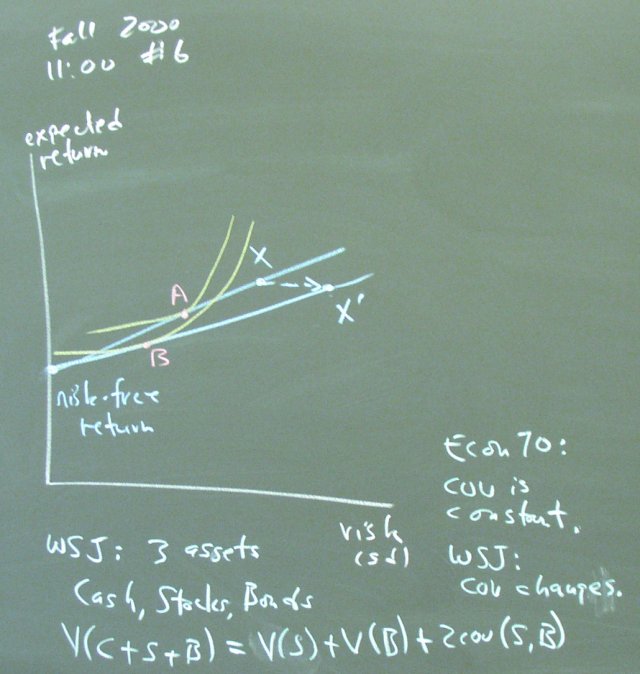 Fall 2000
11:00 #6
expected
return
X
A
X'
B
risk-free
return
Econ 70:
cov is
constant.
risk
(sd)
WSJ: 3 assets
WSJ:
cov changes.
Cash, Stocks, Bonds
V(C+S+B) = V(S)+V(B)+2cov(S,B)